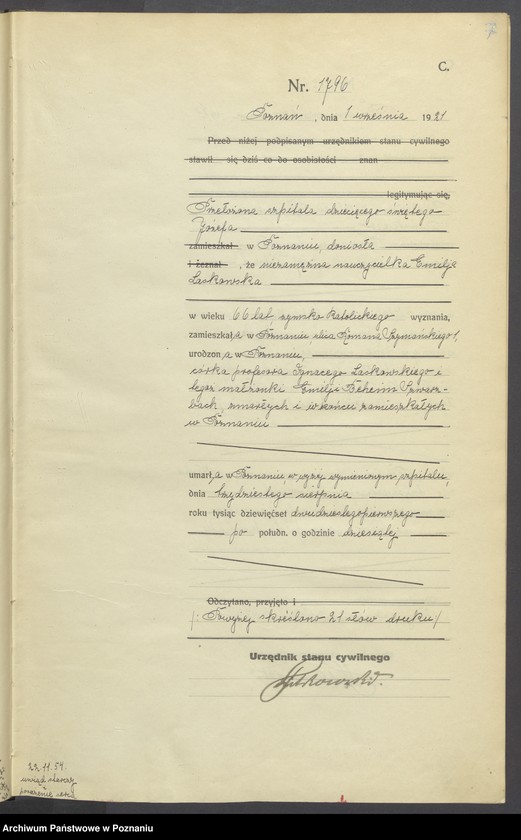 C.
Nr. 1796
Poznań, dnia 1 września 1921
Przed niżej podpisanym urzędnikiem stanu cywilnego
stawił się dziś co do osobistości znan
legitymując się,
Przełożona szpitala dziecięcego świętego
Józefa
zamieszkał w Poznaniu, doniosła
i zeznał, że niezamężna nauczycielka Emilja
Laskowska
w wieku 66 lat, rzymsko katolickiego wyznania,
zamieszkała w Poznaniu, ulica Romana Szymańskiego 1,
urodzona w Poznaniu,
córka profesora Ignacego Laskowskiego i
tegoż małżonki Emilji Beheim Szwarz-
bach, zmarłych i w końcu zamieszkałych
w Poznaniu
umarła w Poznaniu, w wyżej wymienionym szpitalu,
dnia trzydziestego sierpnia
roku tysiąc dziewięćset dwudziestegopierwszego
po połudn. o godzinie dziesiątej
Odczytano, przyjęto i
/: Powyżej skreślono 21 słów druku/
Urzędnik stanu cywilnego
22.11.54.
Archiwum Państwowe w Poznaniu